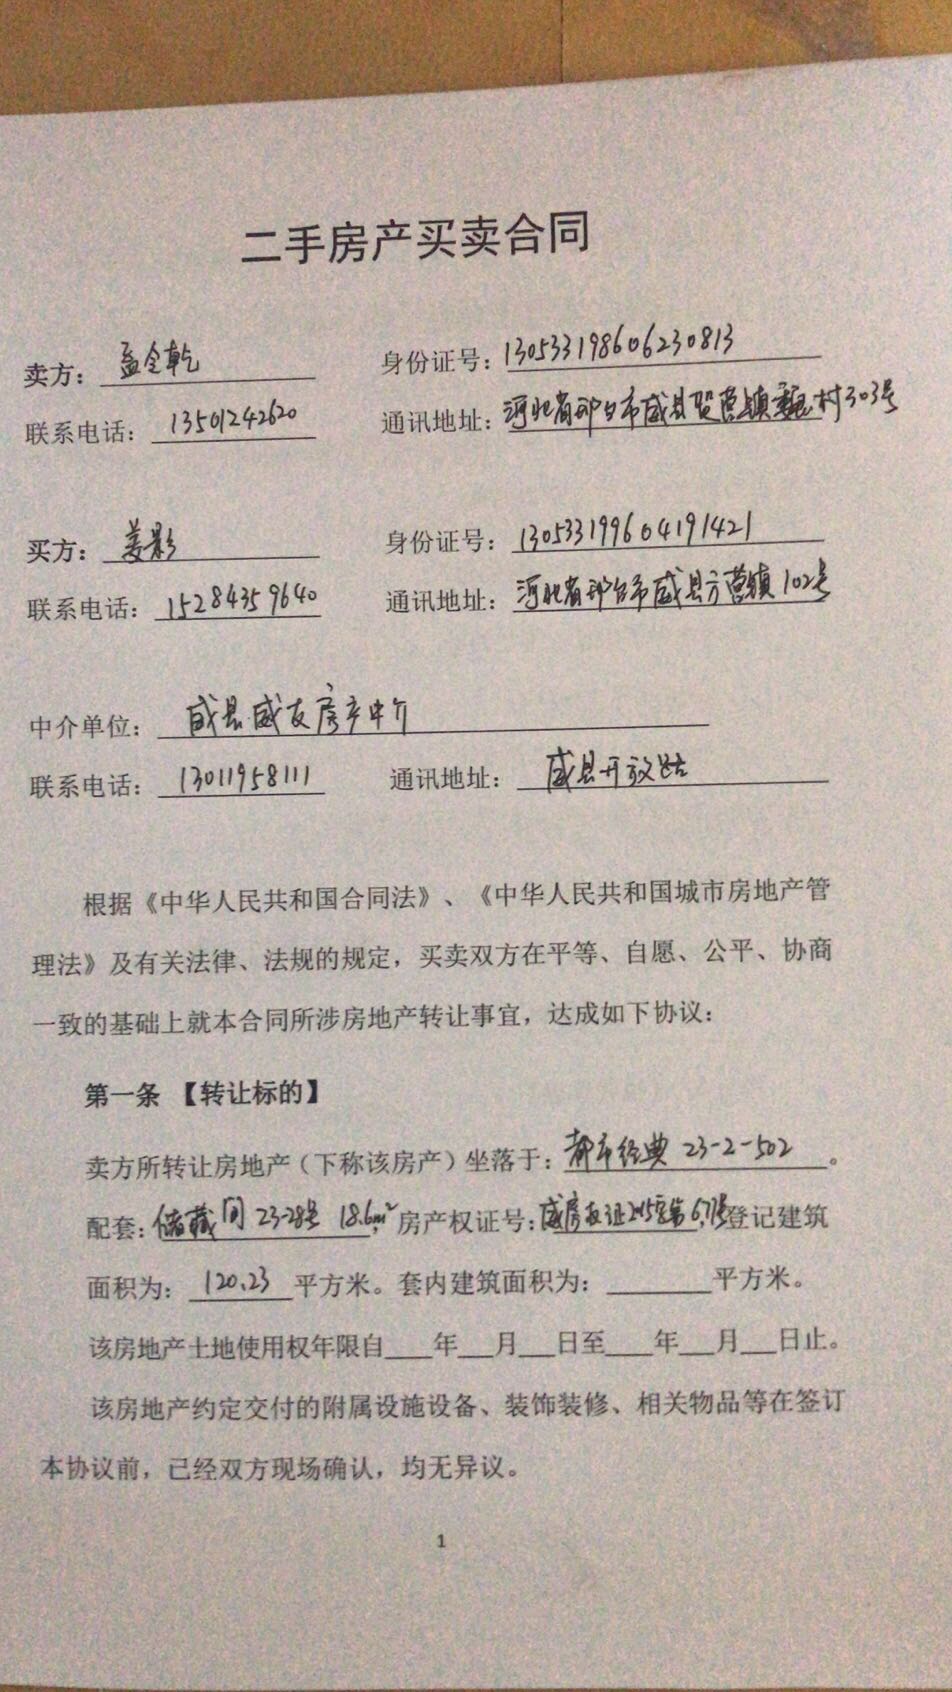 二手房产买卖合同
卖方：孟全乾 身份证号：130533198606230813
联系电话：13501242620 通讯地址：河北省邢台市威县贺营镇魏村303号
买方：姜影 身份证号：130533199604191421
联系电话：15284359640 通讯地址：河北省邢台市威县方营镇102号
中介单位：威县威友房产中介
联系电话：13011958111 通讯地址：威县开放路
根据《中华人民共和国合同法》、《中华人民共和国城市房地产管
理法》及有关法律、法规的规定，买卖双方在平等、自愿、公平、协商
一致的基础上就本合同所涉房地产转让事宜，达成如下协议：
第一条 【转让标的】
卖方所转让房地产（下称该房产）坐落于：都市经典 23-2-502。
配套：储藏间 23-28号 18.6m² 房产权证号：威房权证2015字第671号登记建筑
面积为：120.23平方米。套内建筑面积为：______平方米。
该房地产土地使用权年限自___年__月__日至___年__月__日止。
该房地产约定交付的附属设施设备、装饰装修、相关物品等在签订
本协议前，已经双方现场确认，均无异议。
1